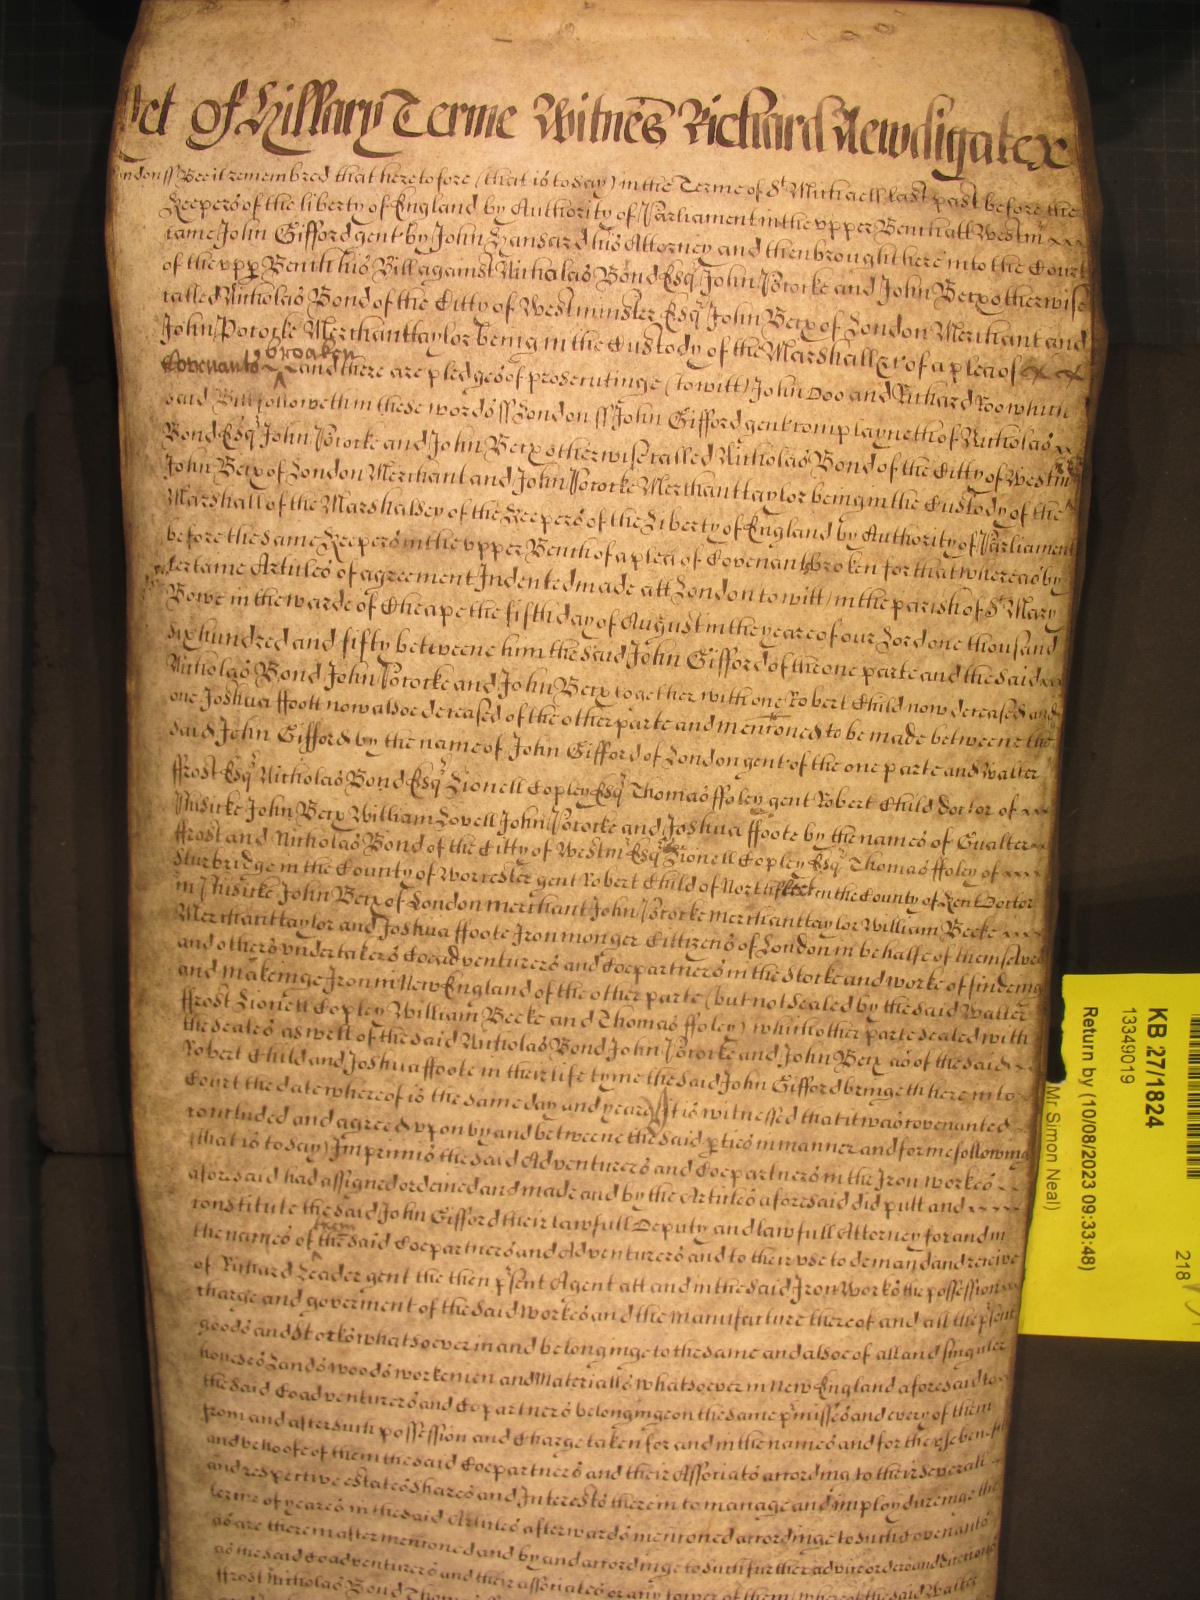 et of Hillary Terme Witnes Richard Newdigate x
ndon ss Bee it remembred that heretofore (that is to say) in the Terme of St Michaell last past before the
Keepers of the liberty of England by Authority of Parliament in the upper Bench att Westm
came John Gifford gent by John Hansard his Attorney and then brought here into the Court
of the upp Bench his Bill against Nicholas Bond Esqr John Pococke and John Bex otherwise
called Nicholas Bond of the Citty of Westminster Esqr John Bex of London Merchant and
John Pococke Merchanttaylor being in the Custody of the Marshall &c of a plea of
Covenants broaken and there are pledges of prosecutinge (to witt) John Doo and Richard Roo which
said Bill followeth in these words ss London ss John Gifford gent complayneth of Nicholas
Bond Esqr John Pococke and John Bex otherwise called Nicholas Bond of the Citty of Westm
John Bex of London Merchant and John Pococke Merchanttaylor being in the Custody of the
Marshall of the Marshalsey of the Keepers of the Liberty of England by Authority of Parliament
before the same Keepers in the upper Bench of a plea of Covenant broken for that whereas by
certaine Articles of agreement Indented made att London to witt in the parish of St Mary
Bowe in the warde of Cheape the fifth day of August in the yeare of our Lord one thousand
six hundred and fifty betweene him the said John Gifford of the one parte and the said
Nicholas Bond John Pococke and John Bex together with one Robert Child now deceased and
one Joshua ffoott now alsoe deceased of the other parte and mentioned to be made betweene the
said John Gifford by the name of John Gifford of London gent of the one parte and Walter
ffrost Esqr Nicholas Bond Esqr Lionell Copley Esqr Thomas ffoley gent Robert Child doctor of
Phisicke John Bex William Lovell John Pococke and Joshua ffoote by the names of Gualter
ffrost and Nicholas Bond of the Citty of Westm Esqr Lionell Copley Esqr Thomas ffoley of
Sturbridge in the County of Worcester gent Robert Child of Northfleet in the County of Kent Doctor
in Phisicke John Bex of London merchant John Pococke merchanttaylor William Beeke
Merchanttaylor and Joshua ffoote Ironmonger Cittizens of London in behalfe of themselves
and others undertakers Coeadventurers and Coepartners in the Stocke and worke of findeing
and makeinge Iron in New England of the other parte (but not sealed by the said Walter
ffrost Lionell Copley William Beeke and Thomas ffoley) which other parte sealed with
the seales aswell of the said Nicholas Bond John Pococke and John Bex as of the said
Robert Child and Joshua ffoote in their life tyme the said John Gifford bringeth here into
Court the date whereof is the same day and yeare It is witnessed that it was covenanted
concluded and agreed upon by and betweene the said pties in manner and forme following
(that is to say) Imprimis the said Adventurers and Coepartners in the Iron workes
aforesaid had assigned ordeined and made and by the Articles aforesaid did putt and
constitute the said John Gifford their lawfull Deputy and lawfull Attorney for and in
the names of them the said Coepartners and Adventurers and to their use to demand and receive
of Richard Leader gent the then psent Agent att and in the said Iron Works the possession
charge and goverment of the said workes and the manufacture thereof and all the psent
goods and Stocks whatsoever in and belonginge to the same and alsoe of all and singuler
houses Lands woods workemen and Materialls whatsoever in New England aforesaid to
the said Coadventurers and Copartners belonginge on the same pmisses and every of them
from and after such possession and Charge taken for and in the names and for the use benefitt
and behoofe of them the said Coepartners and their Associats accordinge to their severall
and respective estates Shares and Interests therein to manage and imploy dureinge the
terme of yeares in the said Articles afterwards mentioned accordinge to such Covenants
as are therein after mentioned and by and accordinge to such further advice orders and directions
as the said Coadventurers and their associates or any fower of them (whereof the said Walter
ffrost Nicholas Bond
KB 27/1824
13349019
Return by (10/08/2023 09:33:48)
Mr Simon Neal)
218